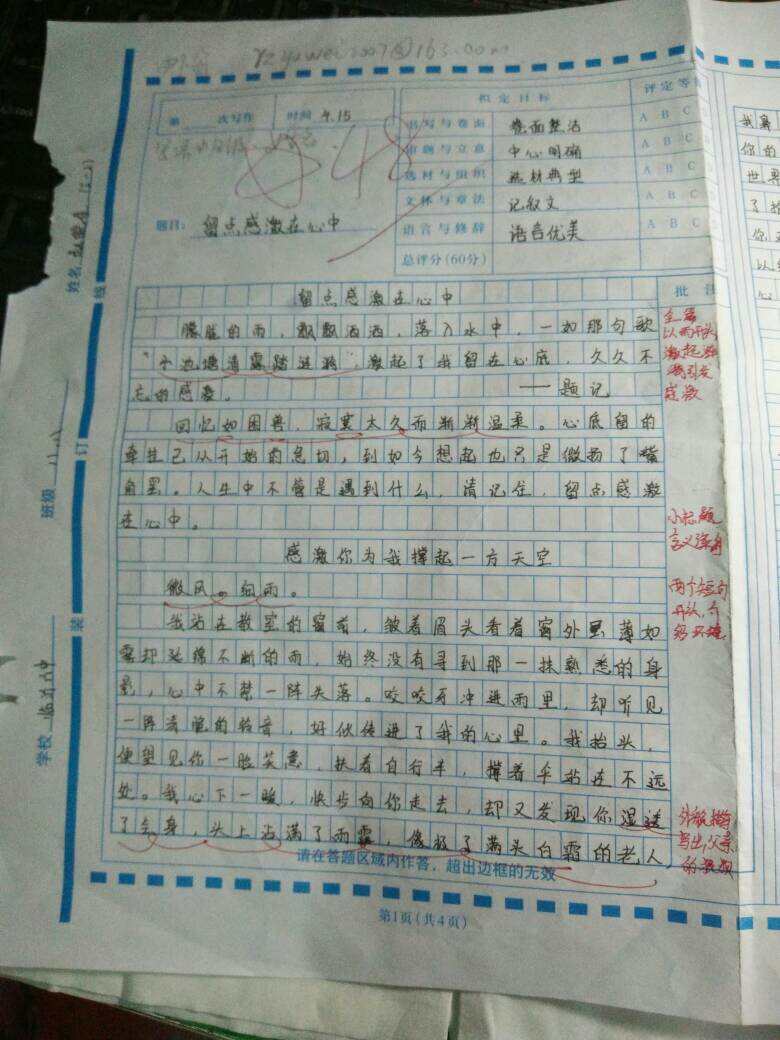 yzyawei7007@163.com
第 次写作 时间 4.15
拟定目标
评定等
书写与卷面 卷面整洁 A B C
审题与立意 中心明确 A B C
选材与组织 选材典型 A B C
文体与章法 记叙文 A B C
语言与修辞 语言优美 A B C
总评分(60分)
48
题目: 留点感激在心中
批 注
留点感激在心中
朦胧的雨,飘飘洒洒,落入水中,一如那句歌
激起了我留在心底,久久不
忘的感激。 ——题记
回忆如困兽,寂寞太久而渐渐温柔。心底留的
牵挂已从开始的急切,到如今想起也只是微扬了嘴
角罢。人生中不管是遇到什么,请记住,留点感激
在心中。
感激你为我撑起一方天空
微风。细雨。
我站在教室的窗前,皱着眉头看着窗外黑薄如
雾却延绵不断的雨,始终没有寻到那一抹熟悉的身
影,心中不禁一阵失落。咬咬牙冲进雨里,却听见
一阵清脆的铃音,好似传进了我的心里。我抬头,
便望见你一脸笑意,扶着自行车,撑着伞站在不远
处。我心下一暖,快步向你走去,却又发现你湿透
了全身,头上沾满了雨露,像极了满头白霜的老人,
请在答题区域内作答,超出边框的无效
第1页(共4页)
全篇
以雨开头
激起
引发
感激
小标题
两个短句
开头,介
绍环境
外貌描写
写出父亲
学校
班级
姓名
装
订
线
我
你的
世界
了
你
以
心